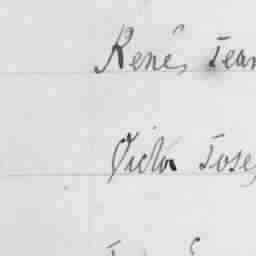 René, Jean
Victor Jose